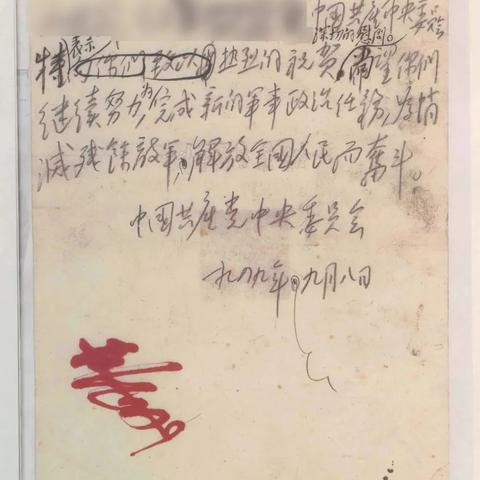 中国共产中央委员会
的慰问。
表示
特 你们致以热烈的祝贺,尚望你们
继续努力,为完成新的军事政治任务,
滅残馀敌军,解放全国人民而奋斗。
中国共产党中央委员会
九四九年九月八日